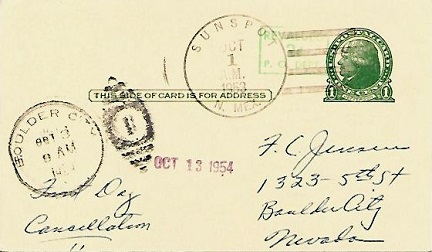 SUNSPOT
OCT
1
A.M.
1953
N. MEX.
P. O. DEPT.
1 1
THIS SIDE OF CARD IS FOR ADDRESS
BOULDER CITY
OCT
9 AM
OCT 13 1954
First Day
Cancellation
F. C. Jensen
1323 - 5th St
Boulder City
Nevada